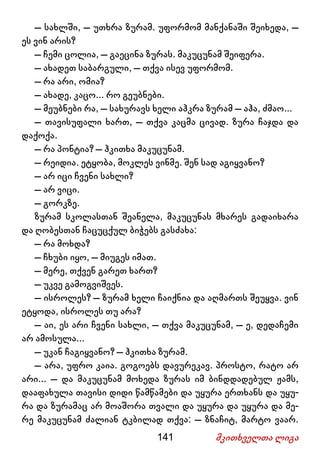 — სახლში, — უთხრა ზურამ. უფორმომ მანქანაში შეიხედა, —
ეს ვინ არის?
— ჩემი ცოლია, — გაეცინა ზურას. მაკუცუნამ შეიფერა.
— ახადეთ საბარგული, — თქვა ისევ უფორმომ.
— რა არი, ომია?
— ახადე, კაცო... რო გეუბნები.
— მეუბნები რა, — სახურავს ხელი აჰკრა ზურამ — აჰა, ძმაო...
— თავისუფალი ხართ, — თქვა კაცმა ცივად. ზურა ჩაჯდა და
დაქოქა.
— რა პონტია? — ჰკითხა მაკუცუნამ.
— რეიდია. ეტყობა, მოკლეს ვინმე. შენ სად აგიყვანო?
— არ იცი ჩვენი სახლი?
— არ ვიცი.
— გორკზე.
ზურამ სკოლასთან შეანელა, მაკუცუნას მხარეს გადაიხარა
და ღობესთან ჩაცუცქულ ბიჭებს გასძახა:
— რა მოხდა?
— ჩხუბი იყო, — მიუგეს იმათ.
— მერე, თქვენ გარეთ ხართ?
— უკვე გამოგვიშვეს.
— ისროლეს? — ზურამ ხელი ჩაიქნია და აღმართს შეუყვა. ვინ
ეტყოდა, ისროლეს თუ არა?
— აი, ეს არი ჩვენი სახლი, — თქვა მაკუცუნამ, — ე, დედაჩემი
არ ამოსულა...
— უკან ჩაგიყვანო? — ჰკითხა ზურამ.
— არა, უფრო კაია. გოგოებს დავურეკავ. პროსტო, რატო არ
არი... — და მაკუცუნამ მოხედა ზურას იმ ბინდდადებულ ჟამს,
დააფახულა თავისი დიდი წამწამები და უყურა ერთხანს და უყუ-
რა და ზურამაც არ მოაშორა თვალი და უყურა და უყურა და მე-
რე მაკუცუნამ ძალიან ტკბილად თქვა: — ზნაჩიტ, მარტო ვაარ.
141
მკითხველთა ლიგა